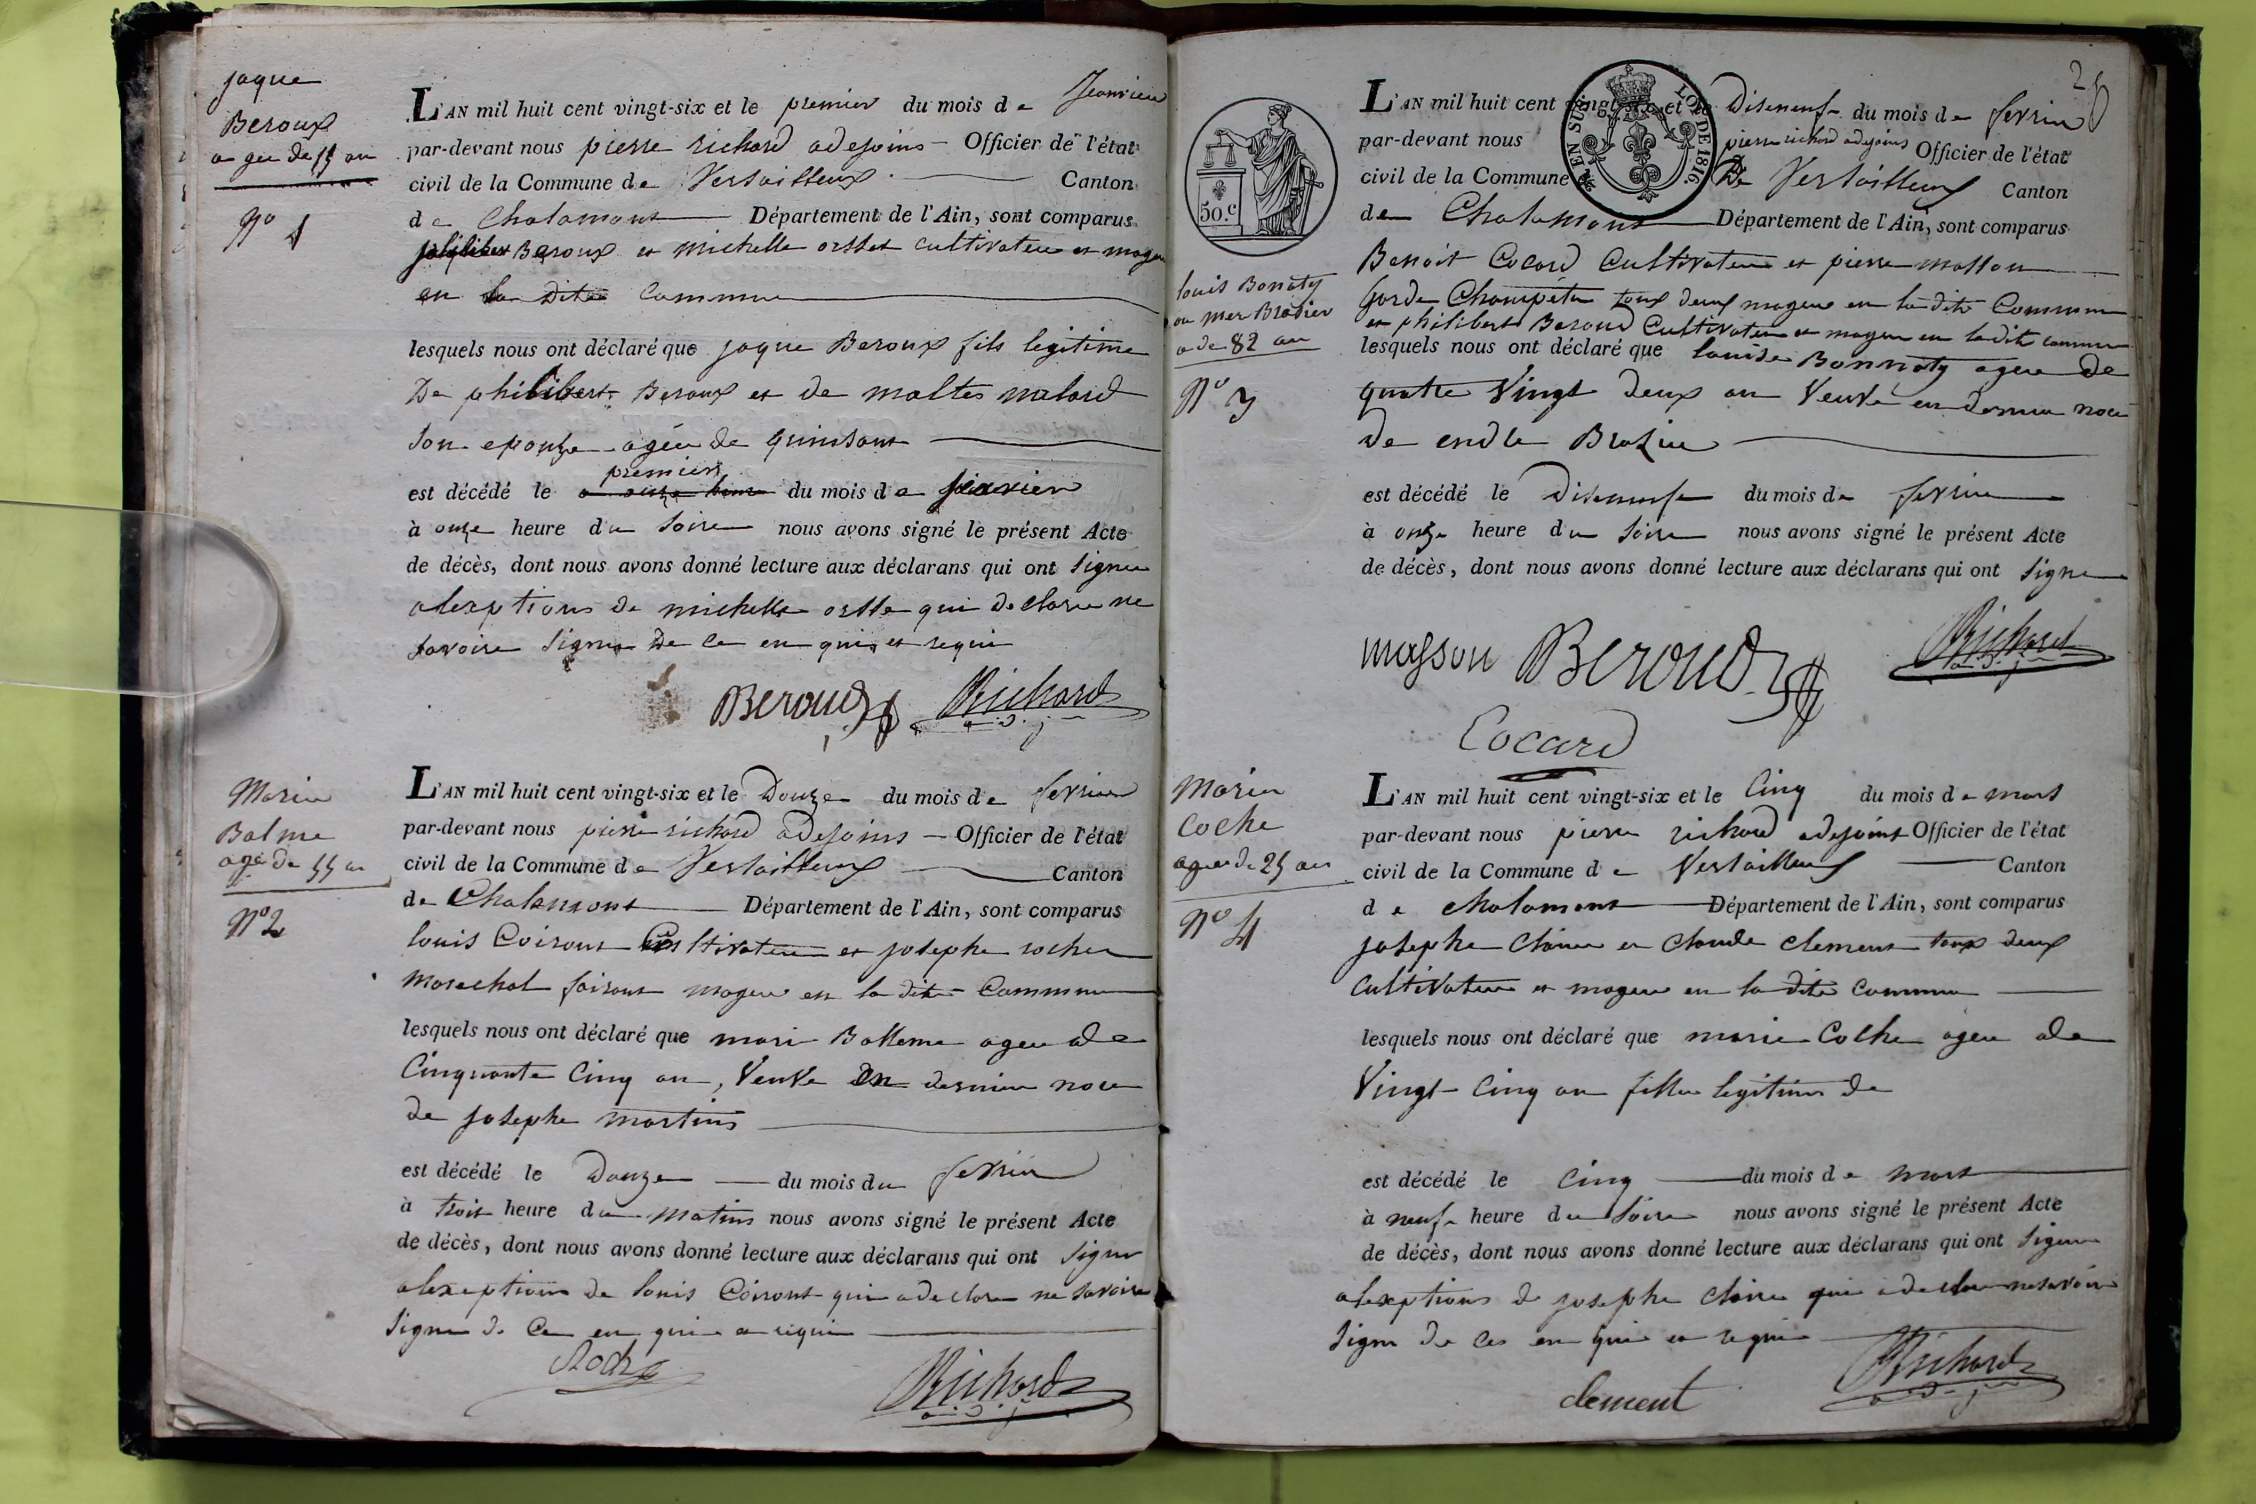 jaque
Beroux
agee de 15 an
N° 1
L'AN mil huit cent vingt-six et le premier du mois de Jeanvier
par-devant nous pierre richard adejoins Officier de l'état
civil de la Commune de Versailleux Canton
de Chalamont Département de l'Ain, sont comparus
philibert Beroux et michelle orsset cultivateur et mageur
en la dite commune
lesquels nous ont déclaré que jaque Beroux fils legitime
De philibert Beroux et de maltes malard
son epouze agée de quinsans
premier
est décédé le du mois de janvier
à onze heure du soire nous avons signé le présent Acte
de décès, dont nous avons donné lecture aux déclarans qui ont signer
alexptions de michelle orsse qui declare ne
savoire signer De ce en qui et requi
Beroud Richard
a. d. j
Marie
Balme
agé de 55 an
N° 2
L'AN mil huit cent vingt-six et le Douze du mois de fevrier
par-devant nous pierre richard adejoins Officier de l'état
civil de la Commune de Versailleux Canton
de Chalamont Département de l'Ain, sont comparus
louis Coiront Cultivateur et josephe rocher
marechal faisant mageur en la dite Commune
lesquels nous ont déclaré que mari Balleme ageu de
Cinquante Cinq an, Veuve En dernier noce
de josephe martins
est décédé le Douze du mois du fevrier
à troit heure du matins nous avons signé le présent Acte
de décès, dont nous avons donné lecture aux déclarans qui ont signer
alexeptions de louis Coiront qui a declare ne savoire
signer de ce en qui a requi
Richard
a. d. j
EN SUS LOI DE 1816.
50.c
25
louis Bonaty
Brasier
a de 82 an
N° 3
L'AN mil huit cent vingt-six et le Diseneuf du mois de fevrier
par-devant nous pierre richard adejoins Officier de l'état
civil de la Commune De Versailleux Canton
de Chalamont Département de l'Ain, sont comparus
Benoit Cocard Cultivateur et pierre masson
Garde Champetre toux deux mageur en la dite Commune
et philibert Beroud Cultivateur et mageur en la dite commune
lesquels nous ont déclaré que louise Bonnaty ageu de
quatre Vingt deux an Veuve en dernier noce
de Brazier
est décédé le Diseneuf du mois de fevrier
à onze heure du soire nous avons signé le présent Acte
de décès, dont nous avons donné lecture aux déclarans qui ont signer
masson Beroud Richard
a. d. j
Cocard
Marie
Coche
ageu de 25 an
N° 4
L'AN mil huit cent vingt-six et le Cinq du mois de mars
par-devant nous pierre richard adejoint Officier de l'état
civil de la Commune de Versailleux Canton
de chalamont Département de l'Ain, sont comparus
josephe Claire et Claude Clement toux deux
cultivateur et mageur en la dite commune
lesquels nous ont déclaré que marie Coche ageu de
Vingt Cinq an fille legitime de
est décédé le Cinq du mois de mars
à neuf heure du soire nous avons signé le présent Acte
de décès, dont nous avons donné lecture aux déclarans qui ont signer
alexptions de josephe Claire qui a declare ne savoire
signer de ces en qui et requi
clement Richard
a. d. j